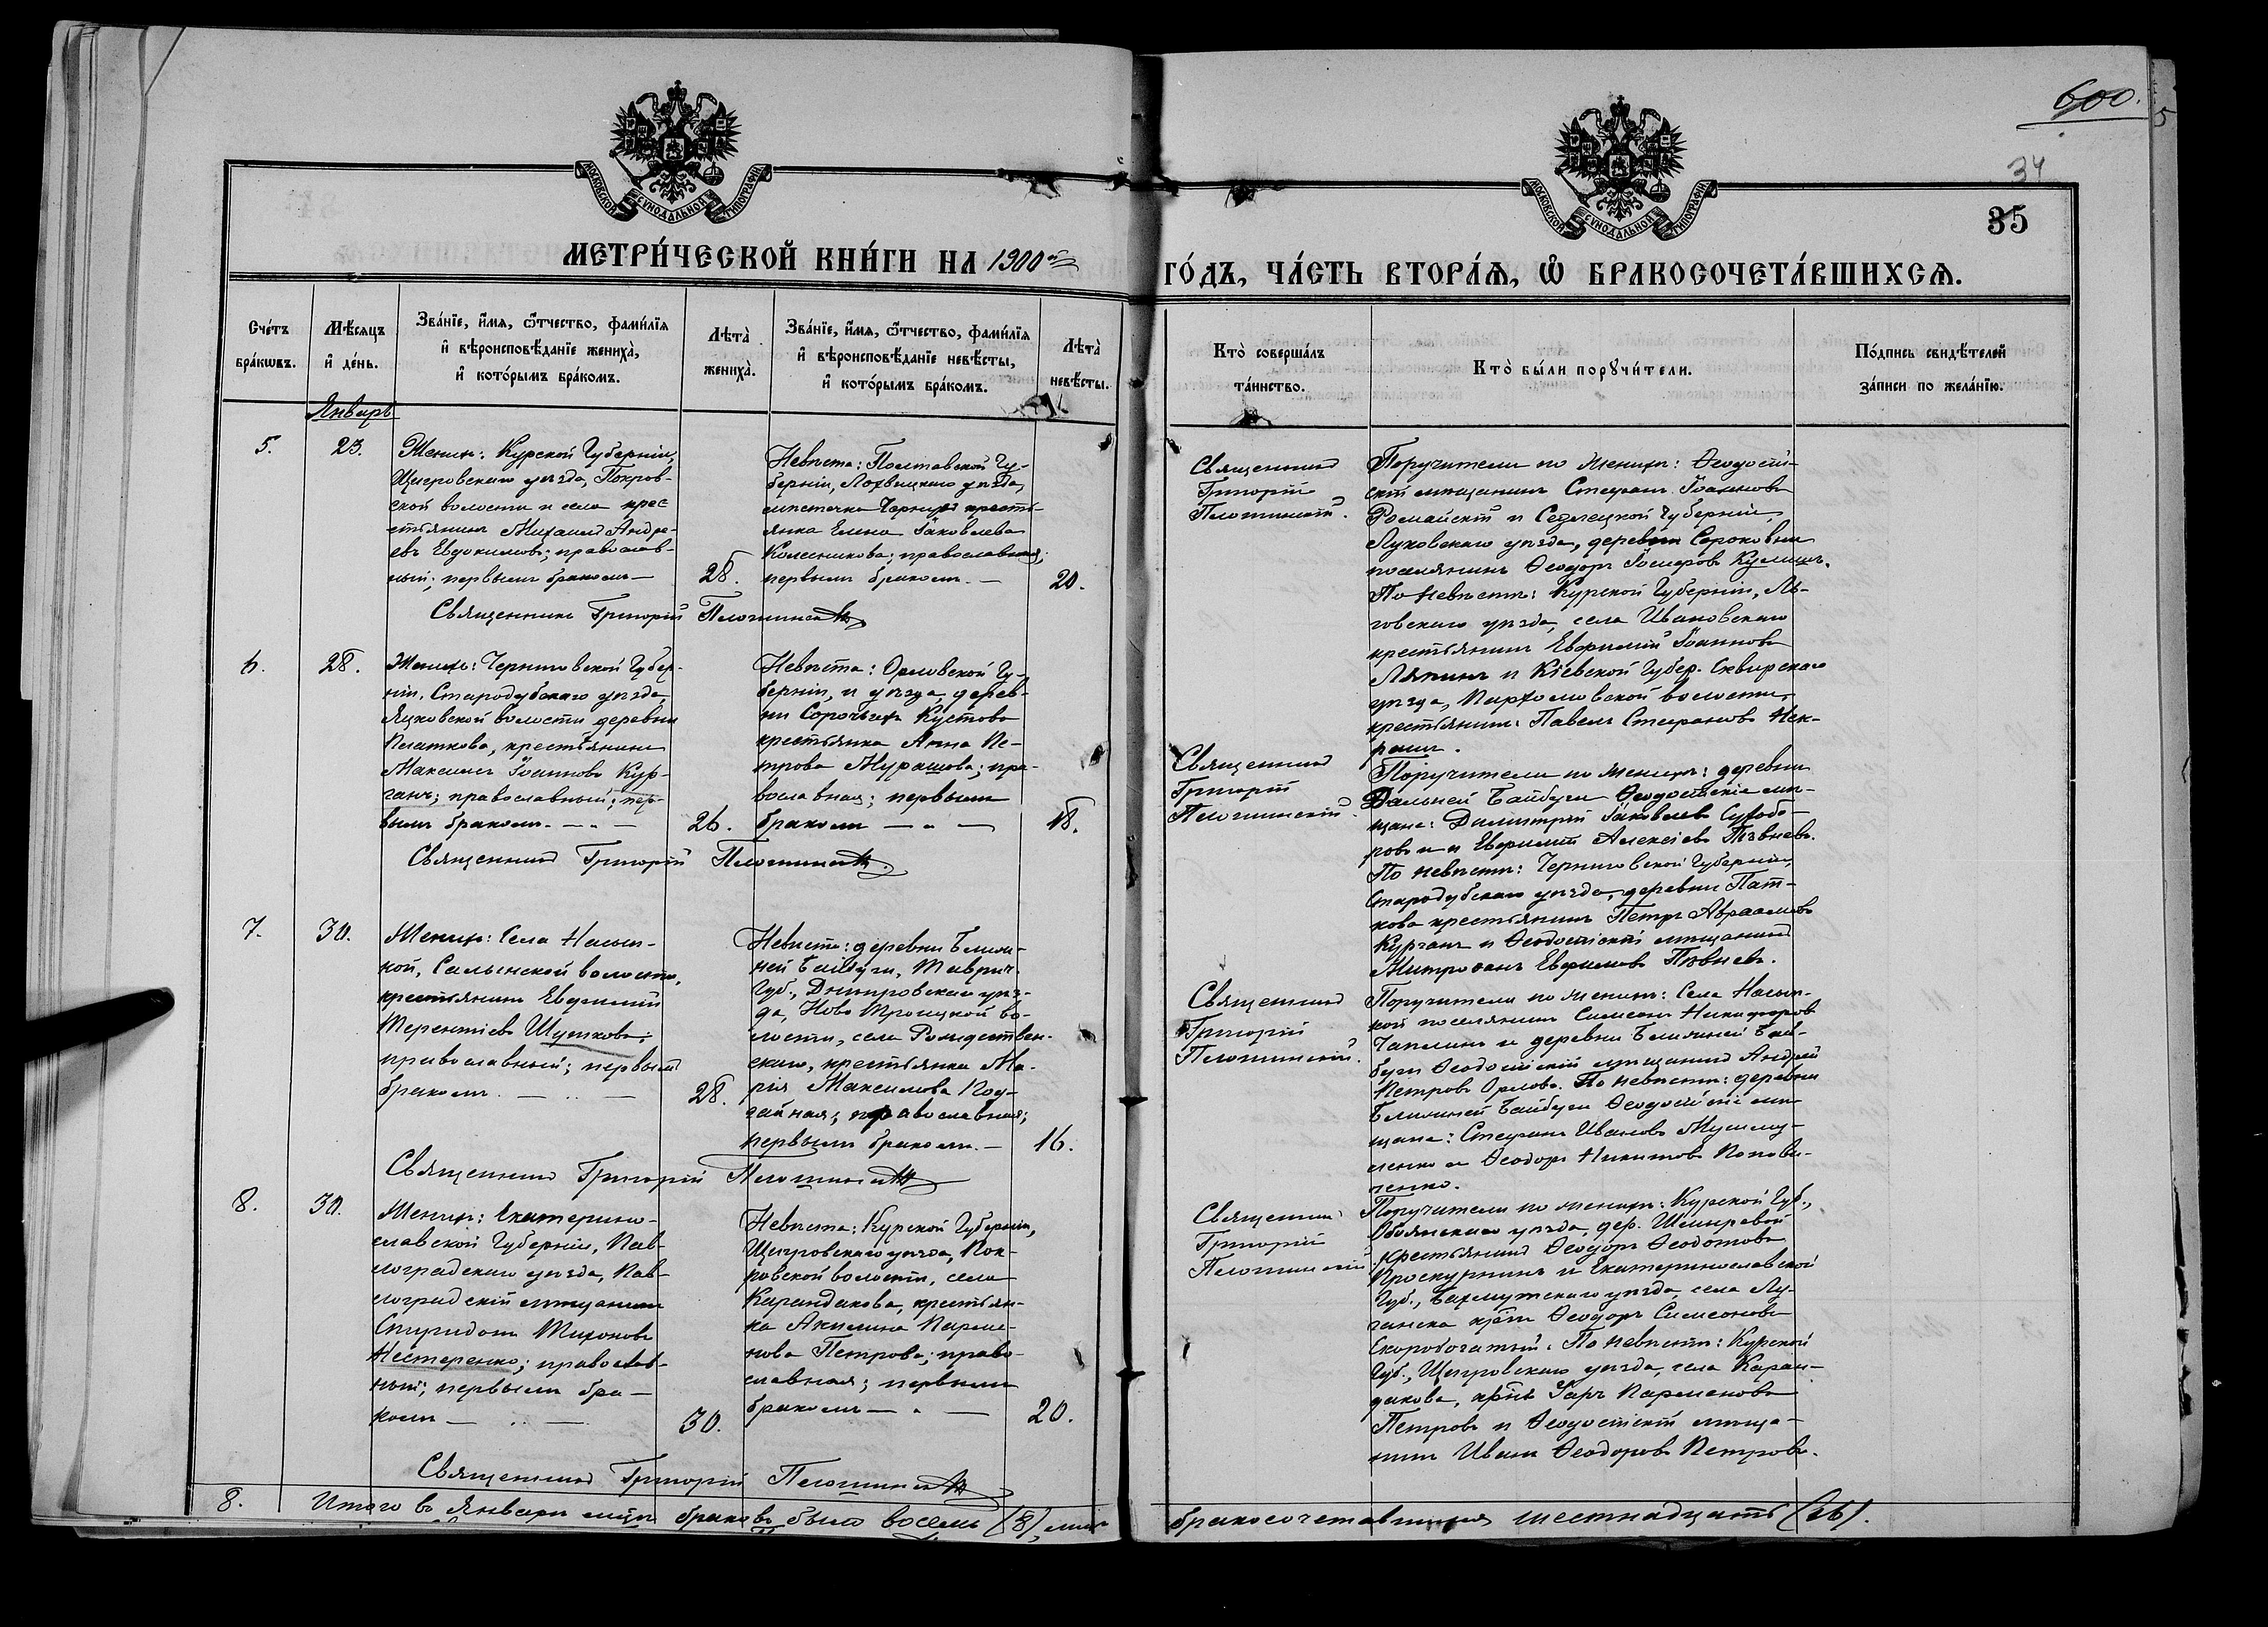 600.
34
35
МОСКОВСКОЙ СѴНОДАЛЬНОЙ ТИПОГРАФІИ
МОСКОВСКОЙ СѴНОДАЛЬНОЙ ТИПОГРАФІИ
МЕТРИ́ЧЕСКОЙ КНИ́ГИ НА 1900й
ГО́ДЪ, ЧА́СТЬ ВТОРА́Ѧ, Ѽ БРАКОСОЧЕТА́ВШИХСѦ.
Сче́тъ бра́кѡвъ.
Мѣ́сяцъ и҆ де́нь.
Зва́нїе, и҆́мя, ѻ҆́тчество, фами́лїя и҆ вѣроисповѣ́данїе жениха̀, и҆ кото́рымъ бра́комъ.
Лѣта̀ жениха̀.
Зва́нїе, и҆́мя, ѻ҆́тчество, фами́лїя и҆ вѣроисповѣ́данїе невѣ́сты, и҆ кото́рымъ бра́комъ.
Лѣта̀ невѣ́сты.
Кто̀ соверша́лъ та́инство.
Кто̀ бы́ли порꙋчи́тели.
По́дпись свидѣ́телей за́писи по жела́нїю.
Январь
5.
23.
Женихъ: Курской Губерніи,
Щигровскаго уѣзда, Покров-
ской волости и села крес
стьянинъ Михаилъ Андре-
евъ Евдокимовъ; православ-
ный; первымъ бракомъ —
28.
Невѣста: Полтавской Гу-
берніи, Лохвицкаго уѣзда,
мѣстечка Чернухъ кресть-
янка Елена Іаковлева
Колесникова; православная;
первымъ бракомъ. —
20.
Священникъ Григорій Плотинскій
Священникъ
Григорій
Плотинскій.
Поручители по женихѣ: Ѳеодосій-
скій мѣщанинъ Стефанъ Іоанновъ
Ромайскій и Седлецкой Губерніи,
Луковскаго уѣзда, деревни Сороковки
поселянинъ Ѳеодоръ Іосифовъ Кулишъ.
По невѣстѣ: Курской Губерніи, Ль-
говскаго уѣзда, села Ивановскаго
крестьянинъ Евфимій Іоанновъ
Ляпинъ и Кіевской Губер. Сквирскаго
уѣзда, Пархомовской волости,
крестьянинъ Павелъ Стефановъ Нек-
рашъ.
6.
28.
Женихъ: Черниговской Губер-
ніи, Стародубскаго уѣзда,
Яцковской волости деревни
Платкова, крестьянинъ
Максимъ Іоанновъ Кур-
ганъ; православный; пер-
вымъ бракомъ. — „ —
26.
Невѣста: Орловской Гу-
берніи, и уѣзда, дерев-
ни Сорочьихъ Кустовъ
крестьянка Анна Пе-
трова Мурашова; пра-
вославная; первымъ
бракомъ — „ —
18.
Священникъ Григорій Плотинскій.
Священникъ
Григорій
Плотинскій.
Поручители по женихѣ: деревни
Дальней Байбуги Ѳеодосійскіе мѣ-
щане: Димитрій Іаковлевъ Сухобо-
ровъ и Евфимій Алексіевъ Пѣвневъ.
По невѣстѣ: Черниговской Губерніи,
Стародубскаго уѣзда, деревни Плат-
кова крестьянинъ Петръ Авраамовъ
Курганъ и Ѳеодосійскій мѣщанинъ
Митрофанъ Евфимовъ Пѣвневъ.
7.
30.
Женихъ: Села Насып-
ной, Салынской волости,
крестьянинъ Евфимій
Терентіевъ Шутковъ;
православный; первымъ
бракомъ. — „ —
28.
Невѣста: деревни Ближ-
ней Байбуги, Таврич.
Губ., Днѣпровскаго уѣз-
да, Ново Троицкой во-
лости, села Рождествен-
скаго, крестьянка Ма-
рія Максимова Код-
гайная; православная;
первымъ бракомъ. —
16.
Священникъ Григорій Плотинскій
Священникъ
Григорій
Плотинскій.
Поручители по женихѣ: Села Насып-
ной поселянинъ Симеонъ Никифоровъ
Чаплинъ и деревни Ближней Бай-
буги Ѳеодосійскій мѣщанинъ Андрей
Петровъ Орловъ. По невѣстѣ: деревни
Ближней Байбуги Ѳеодосійскіе мѣ-
щане: Стефанъ Ивановъ
и Ѳеодоръ Никитовъ Попови-
ченко.
8.
30.
Женихъ: Екатерино-
славской Губерніи, Пав-
лоградскаго уѣзда, Пав-
лоградскій мѣщанинъ
Спиридонъ Тихоновъ
Нестеренко; православ-
ный; первымъ бра-
комъ — „ —
30.
Невѣста: Курской Губерніи,
Щигровскаго уѣзда, Пок-
ровской волости, села
Карандакова, крестьян-
ка Акилина Парме-
нова Петрова; право-
славная; первымъ
бракомъ — „ —
20.
Священникъ Григорій Плотинскій
Священникъ
Григорій
Плотинскій.
Поручители по женихѣ: Курской Губ.,
Обоянскаго уѣзда, дер. Шемыревой
крестьянинъ Ѳеодоръ Ѳеодотовъ
Проскурнинъ и Екатеринославской
Губ., Бахмутскаго уѣзда, села Лу-
ганска кр-нъ Ѳеодоръ Симеоновъ
Скоробогатый. По невѣстѣ: Курской
Губ., Щигровскаго уѣзда, села Каран-
дакова, кр-нъ Іаръ Парменовъ
Петровъ и Ѳеодосійскій мѣща-
нинъ Иванъ Ѳеодоровъ Петровъ.
8.
Итого въ Январѣ мѣсяцѣ браковъ было восемь (8), лицъ
бракосочетавшихся шестнадцать (16).